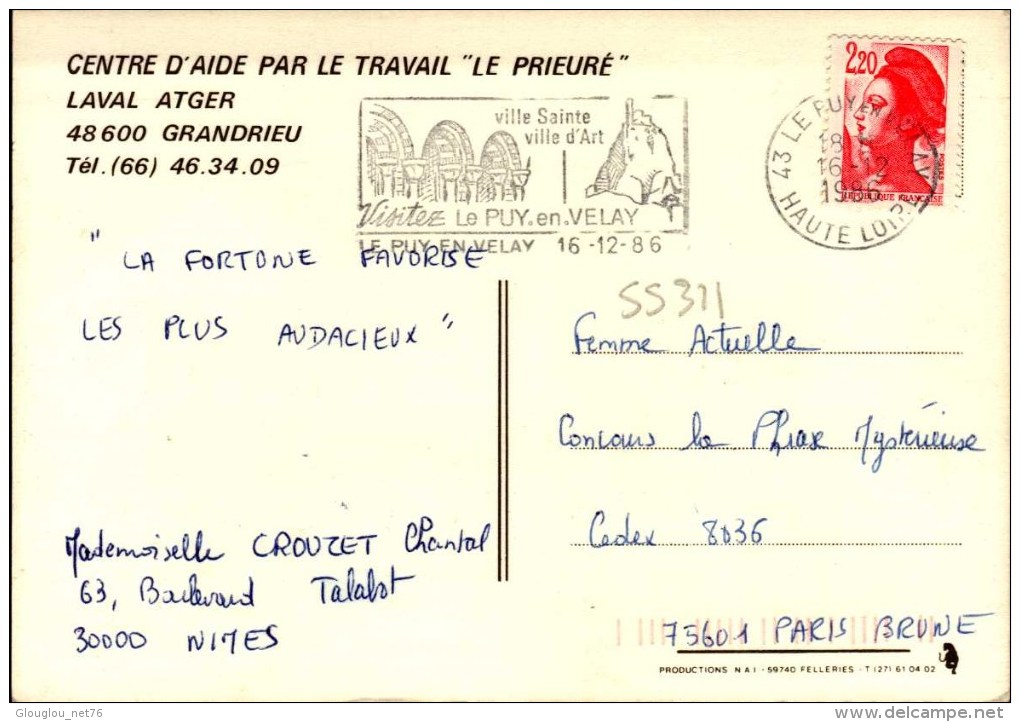 CENTRE D'AIDE PAR LE TRAVAIL "LE PRIEURÉ"
LAVAL ATGER
48600 GRANDRIEU
Tél.(66) 46.34.09
ville Sainte
ville d'Art
Visitez LE PUY.en.VELAY
LE PUY-EN-VELAY 16-12-86
2,20
RÉPUBLIQUE FRANÇAISE
43 LE PUY EN VELAY
18 H
16-12
1986
HAUTE LOIRE
" LA FORTUNE FAVORISE
LES PLUS AUDACIEUX "
55311
Femme Actuelle
Concours la Phrase Mystérieuse
Cedex 8036
75601 PARIS BRUNE
Mademoiselle CROUZET Chantal
63, Boulevard Talabot
30000 NIMES
PRODUCTIONS N.A.I - 59740 FELLERIES - T (27) 61 04 02
Glouglou_net76